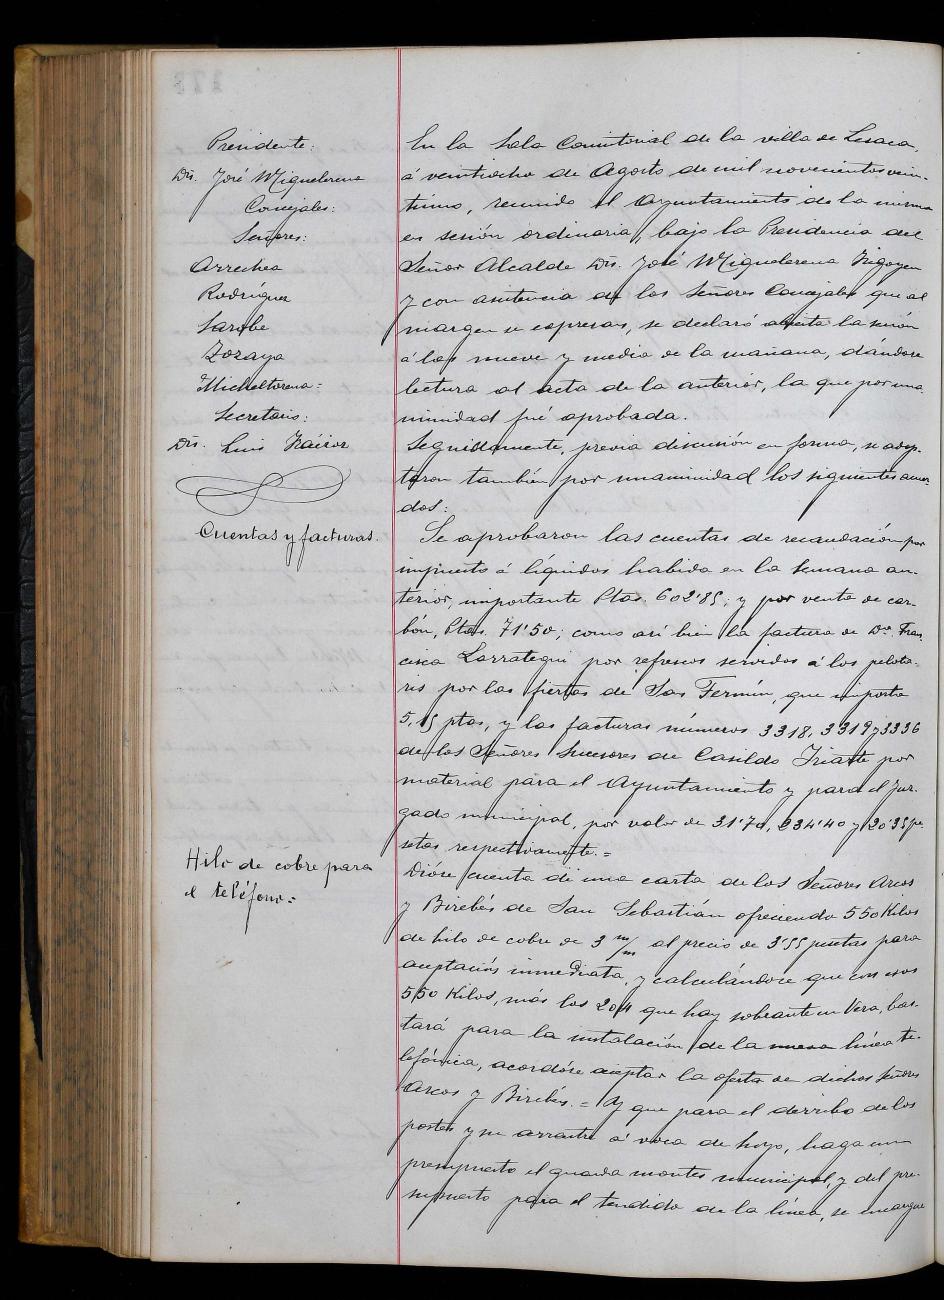 Presidente:
Dn. José Miguelerena
Concejales:
Señores:
Arrechea
Rodríguez
Sarobe
Zozaya
Micheltorena=
Secretario:
Dn. Luis
Cuentas y facturas.
Hilo de cobre para
el teléfono.=
En la Sala Consistorial de la villa de Lesaca,
á veintiocho de Agosto de mil novecientos vein-
tiuno, reunido el Ayuntamiento de la misma
en sesión ordinaria, bajo la Presidencia del
Señor Alcalde Dn. José Miguelerena Irigoyen
y con asistencia de los Señores Concejales que al
margen se expresan, se declaró abierta la sesión
á las nueve y media de la mañana, dándose
lectura al acta de la anterior, la que por una-
nimidad fué aprobada.
Seguidamente, previa discusión en forma, se adop-
taron también por unanimidad los siguientes acuer-
dos:
Se aprobaron las cuentas de recaudación por
impuesto á líquidos habida en la semana an-
terior, importante Ptas. 602'85; y por venta de car-
bón, Ptas. 71'50; como así bien la factura de Dña. Fran-
cisca Larrategui por refrescos servidos á los pelota-
ris por las fiestas de San Fermín, que importa
5,15 ptas, y las facturas números 3318, 3319 y 3336
de los Señores Sucesores de Casildo Iriarte por
material para el Ayuntamiento y para el Juz-
gado municipal, por valor de 31'70, 234'40 y 20'35 pe-
setas respectivamente.=
Dióse cuenta de una carta de los Señores Arcos
y Birebés de San Sebastián ofreciendo 550 Kilos
de hilo de cobre de 3 m/m al precio de 3'55 pesetas para
aceptación inmediata, y calculándose que con esos
550 Kilos, más los 204 que hay sobrante en Vera, bas-
tará para la instalación de la nueva línea te-
lefónica, acordóse aceptar la oferta de dichos Señores
Arcos y Birebés.= Y que para el derribo de los
postes y su arrastre á voca de hoyo, haga un
presupuesto el guarda montes municipal, y del pre-
supuesto para el tendido de la línea, se encargue